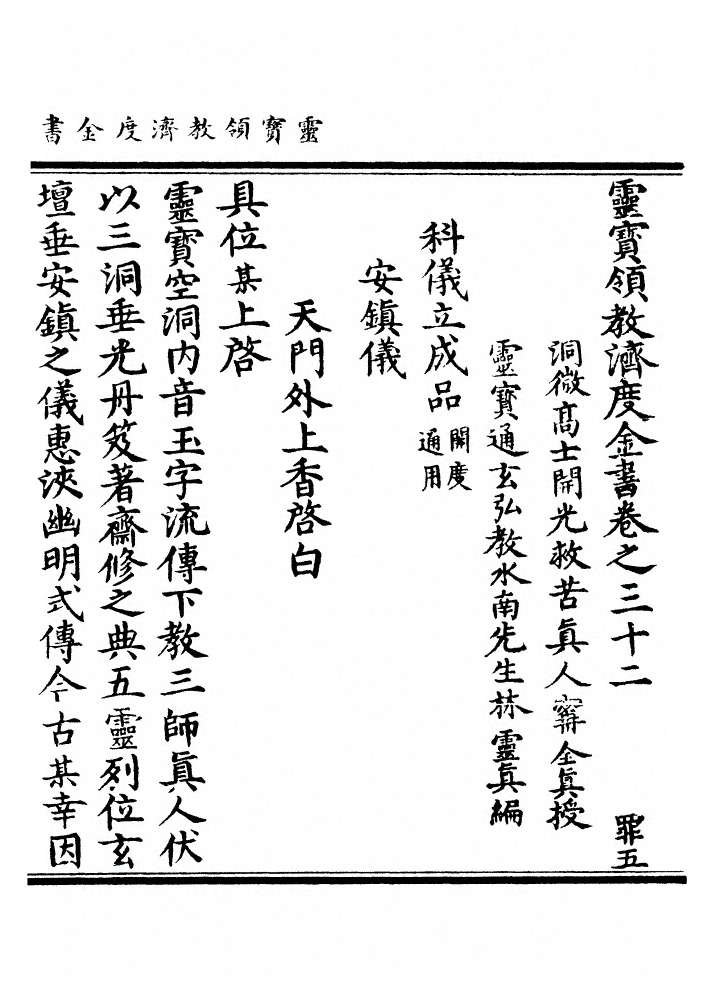 靈寶領教濟度金書
靈寶領教濟度金書卷之三十二 罪五
洞微高士開光救苦眞人甯全眞授
靈寶通玄弘教水南先生林靈眞編
科儀立成品 開度通用
安鎮儀
天門外上香啓白
具位某上啓
靈寶空洞內音玉字流傳下教三師眞人伏
以三洞垂光丹笈著齋修之典五靈列位玄
壇垂安鎮之儀惠浹幽明式傳今古某幸因